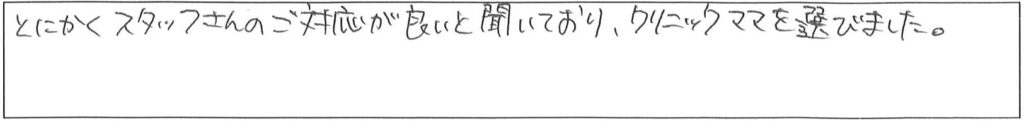 とにかくスタッフさんのご対応が良いと聞いており、クリニックママを選びました。